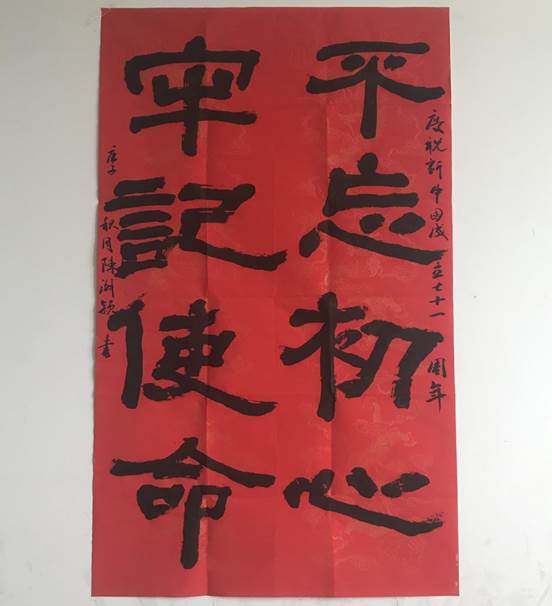 慶祝新中国成立七十一周年
不忘初心
牢記使命
庚子秋月陳湖穎書